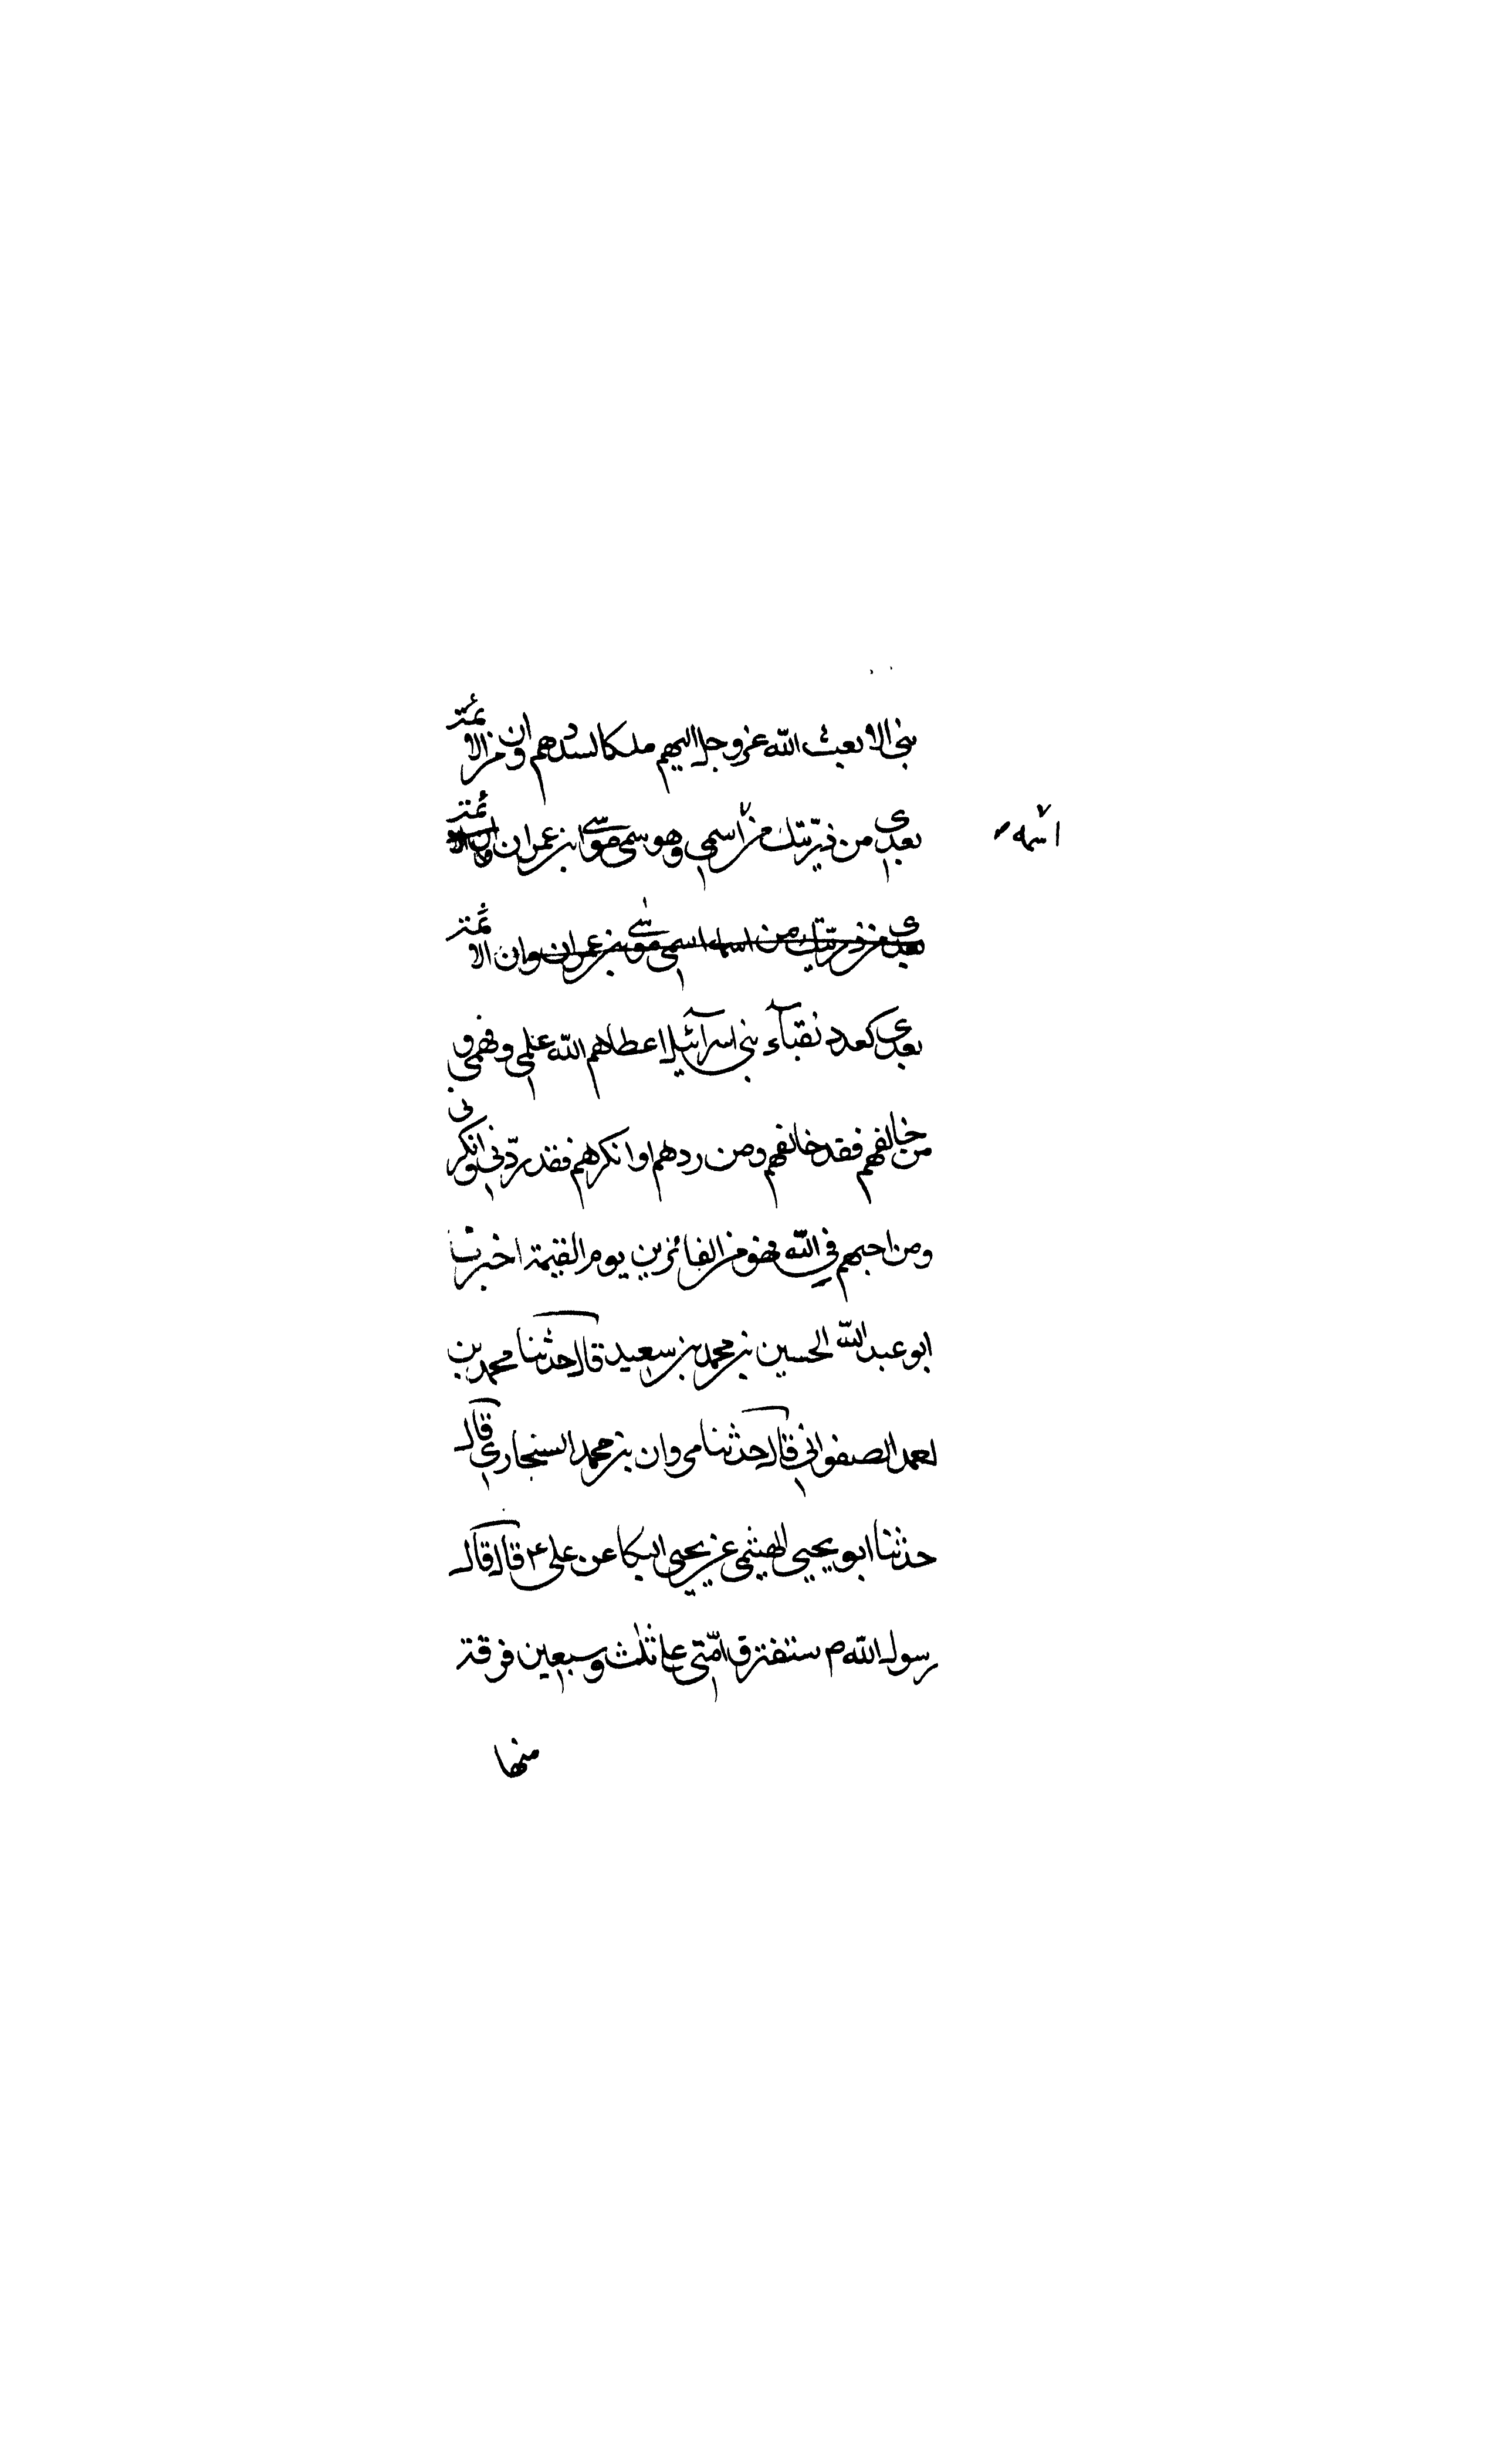 نبي الا بعث الله عز و جل اليهم ملكا يسددهم وان من الائمة
بعدي من ذريتك من اسمه اسمي وهو سمي موسى ابن عمران وان الائمة
بعدي من ذريتك من اسمه اسمي موسى بن عمران وان الائمة
بعدي كعدد نقباء بني اسرآئيل اعطاهم الله علمي وفهمي
من خالفهم فقد خالفهم ومن ردهم او انكرهم فقد ردني وانكرني
ومن احبهم في الله فهو من الفائزين يوم القيمة اخبرنا
ابو عبد الله الحسين بن محمد بن سعيد قال حدثنا محمد بن
الصفواني قال حدثنا مروان بن محمد السنجاري قال
حدثنا ابو يحيى عن يحيى البكا عن علي ع قال قال
رسول الله ص ستفترق امتي على ثلث وسبعين فرقة
منها